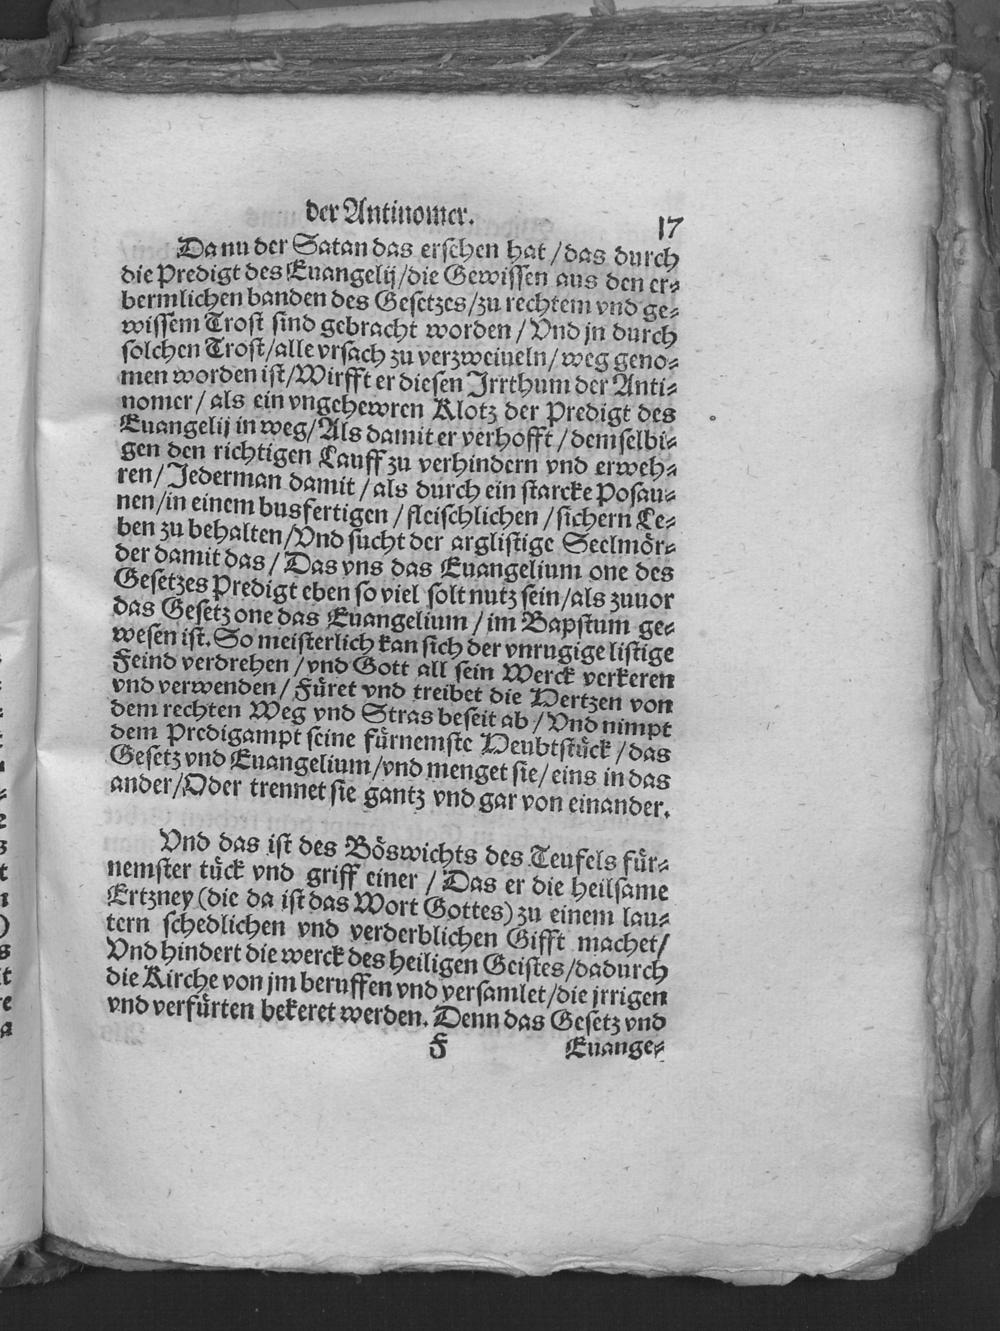 der Antinomer. 17
Da nu der Satan das ersehen hat / das durch
die Predigt des Euangelij / die Gewissen aus den er⸗
bermlichen banden des Gesetzes / zu rechtem vnd ge⸗
wissem Trost sind gebracht worden / Vnd jn durch
solchen Trost / alle vrsach zu verzweiueln / weg geno⸗
men worden ist / Wirfft er diesen Irrthum der Anti⸗
nomer / als ein vngehewren Klotz der Predigt des
Euangelij in weg / Als damit er verhofft / demselbi⸗
gen den richtigen Lauff zu verhindern vnd erweh⸗
ren / Jederman damit / als durch ein starcke Posau⸗
nen / in einem busfertigen / fleischlichen / sichern Le⸗
ben zu behalten / Vnd sucht der arglistige Seelmör⸗
der damit das / Das vns das Euangelium one des
Gesetzes Predigt eben so viel solt nutz sein / als zuuor
das Gesetz one das Euangelium / im Bapstum ge⸗
wesen ist. So meisterlich kan sich der vnrugige listige
Feind verdrehen / vnd Gott all sein Werck verkeren
vnd verwenden / Füret vnd treibet die Hertzen von
dem rechten Weg vnd Stras beseit ab / Vnd nimpt
dem Predigampt seine fürnemste Heubtstück / das
Gesetz vnd Euangelium / vnd menget sie / eins in das
ander / Oder trennet sie gantz vnd gar von einander.
Vnd das ist des Böswichts des Teufels für⸗
nemster tück vnd griff einer / Das er die heilsame
Ertzney (die da ist das Wort Gottes) zu einem lau⸗
tern schedlichen vnd verderblichen Gifft machet /
Vnd hindert die werck des heiligen Geistes / dadurch
die Kirche von jm beruffen vnd versamlet / die jrrigen
vnd verfürten bekeret werden. Denn das Gesetz vnd
F Euange⸗